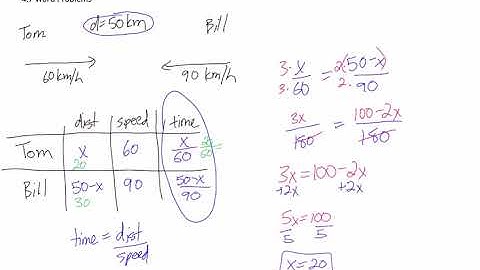 4.7 Word Problems
d=50km
Tom Bill
60km/h 90 km/h
dist speed time
Tom x 60 x/60 20/60=
20
Bill 50-x 90 50-x/90
30
time = dist/speed
3· x/60 = 2(50-x)/90
3· 2·
3x/180 = 100-2x/180
3x = 100-2x
+2x +2x
5x = 100
5 5
x = 20